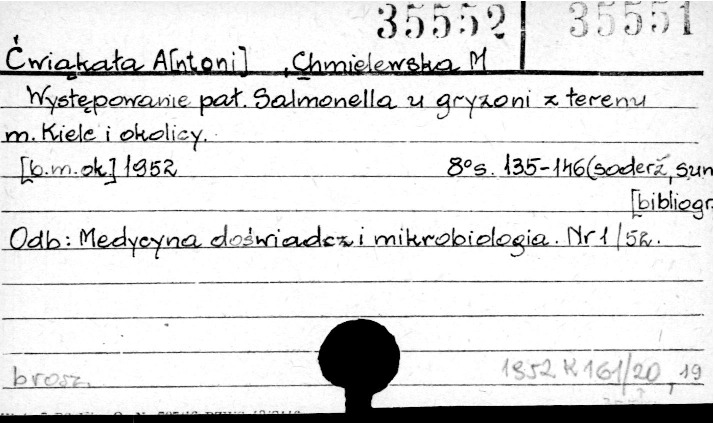 35552 35551
Ćwiąkała A[ntoni] , Chmielewska M
Występowanie pat. Salmonella u gryzoni z terenu
m. Kielc i okolicy.
[b.m.ok.] 1952 8° s. 135-146 (soderż, sum
[bibliogr.
Odb: Medycyna doświadcz i mikrobiologia. Nr 1/52.
brosz. 1952 K 161/20, 19